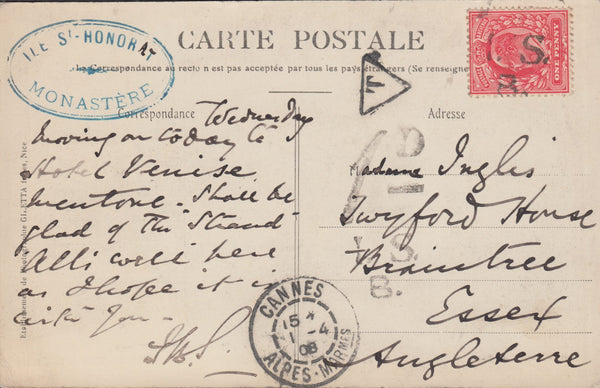 ILE St-HONORAT
MONASTÈRE
CARTE POSTALE
La Correspondance au recto n'est pas acceptée par tous les pays étrangers (Se renseigner
Correspondance
Adresse
T
ONE PENNY
S.
B.
1D
S.
B.
Wednesday
moving on today to
Hotel Venise
Mentone. Shall be
glad of the "Strand"
All well here
as I hope it is
with you —
Madame Inglis
Twyford House
Braintree
Essex
Angleterre
CANNES
15 *
1 - 4
08
ALPES-MARMES
GILETTA frères, Nice